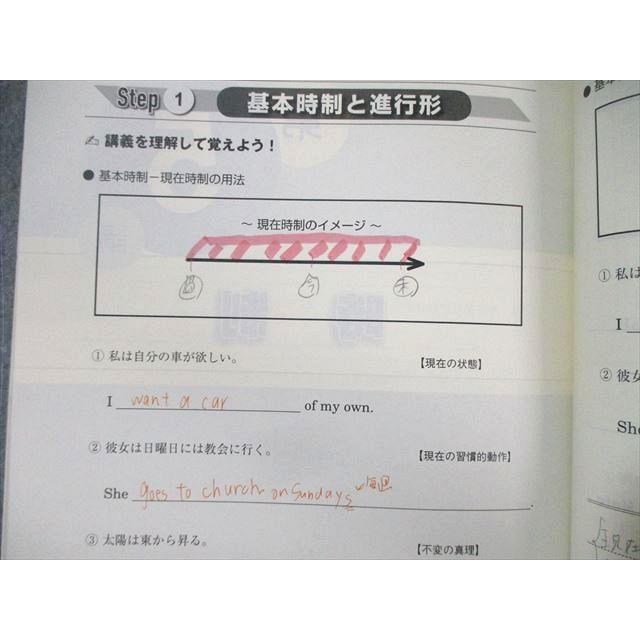 Step 1 基本時制と進行形
講義を理解して覚えよう！
● 基本時制－現在時制の用法
～ 現在時制のイメージ ～
過 今 未
① 私は自分の車が欲しい。 【現在の状態】
I want a car of my own.
② 彼女は日曜日には教会に行く。 【現在の習慣的動作】
She goes to church on Sundays 毎週.
③ 太陽は東から昇る。 【不変の真理】
● 基本
① 私は
I
② 彼女
She